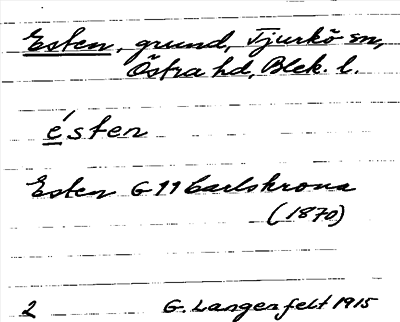 Esten, grund, Tjurkö sn,
Östra hd, Blek. l.
ésten
Esten G 11 Carlskrona
(1870)
2 G. Langenfelt 1915